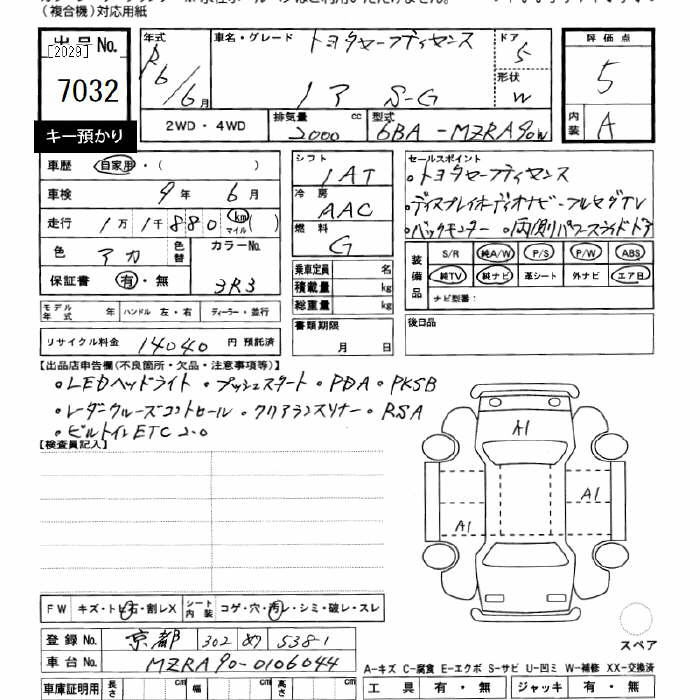 （複合機）対応用紙
出品No.
[2029]
7032
キー預かり
年式 R6/6月
車名・グレード トヨタセーフティセンス
ノア S-G
ドア 5
形状 W
評価点 5
内装 A
2WD・4WD
排気量 2000 cc
型式 6BA-MZRA90W
車歴 自家用・( )
車検 9年 6月
走行 1万 1千 880 km マイル ( )
色 アカ 色替 カラーNo. 3R3
保証書 有・無
シフト IAT
冷房 AAC
燃料 G
乗車定員 名
積載量 kg
総重量 kg
書類期限 月 日
セールスポイント
・トヨタセーフティセンス
・ディスプレイオーディオナビ-フルセグTV
・バックモニター ・両側パワースライドドア
装備品 S/R 純A/W P/S P/W ABS
純TV 純ナビ 革シート 外ナビ エア日
ナビ型番：
後日品
モデル年式 年 ハンドル 左・右 ディーラー・並行
リサイクル料金 14040 円 預託済
【出品店申告欄(不良箇所・欠品・注意事項等)】
・LEDヘッドライト ・プッシュスタート ・PDA ・PKSB
・レーダークルーズコントロール ・クリアランスソナー ・RSA
・ビルトインETC2.0
【検査員記入】
A1
A1
A1
FW キズ・トビ石・割レX シート内装 コゲ・穴・汚レ・シミ・破レ・スレ
スペア
登録No. 京都 302 め 5381
車台No. MZRA90-0106044
A-キズ C-腐食 E-エクボ S-サビ U-凹ミ W-補修 XX-交換済
車庫証明用 長さ cm 幅 cm 高さ cm
工具 有・無 ジャッキ 有・無